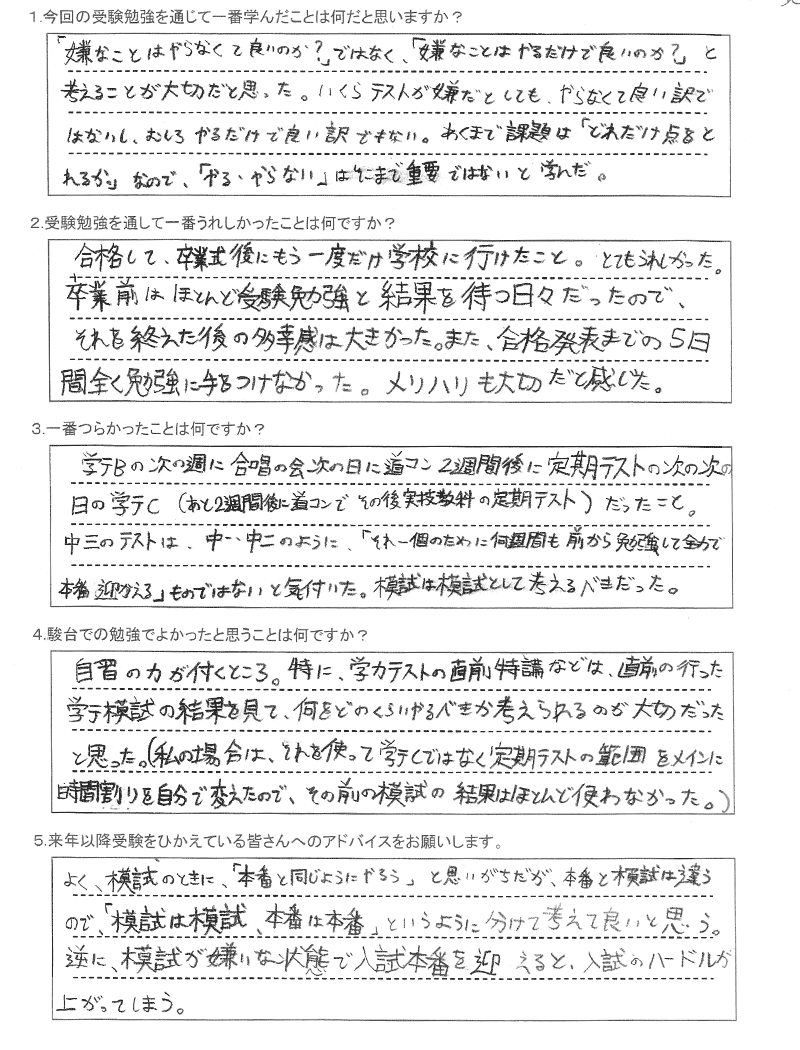 1.今回の受験勉強を通じて一番学んだことは何だと思いますか？
「嫌なことはやらなくて良いのか？」ではなく、「嫌なことはやるだけで良いのか？」と
考えることが大切だと思った。いくらテストが嫌だとしても、やらなくて良い訳で
はないし、むしろやるだけで良い訳でもない。あくまで課題は「どれだけ点をと
れるか」なので、「やる・やらない」はそこまで重要ではないと学んだ。
2.受験勉強を通して一番うれしかったことは何ですか？
合格して、卒業式後にもう一度だけ学校に行けたこと。とてもうれしかった。
卒業前はほとんど受験勉強と結果を待つ日々だったので、
それを終えた後の多幸感は大きかった。また、合格発表までの5日
間全く勉強に手をつけなかった。メリハリも大切だと感じた。
3.一番つらかったことは何ですか？
学テBの次の週に合唱の会次の日に道コン2週間後に定期テストの次の次の
日の学テC（あと2週間後に道コンでその後実技教科の定期テスト）だったこと。
中三のテストは、中一、中二のように、「それ一個のために何週間も前から勉強して全力で
本番迎かえる」ものではないと気付いた。模試は模試として考えるべきだった。
4.駿台での勉強でよかったと思うことは何ですか？
自習の力が付くところ。特に、学力テストの直前特講などは、直前の行った
学テ模試の結果を見て、何をどのくらいやるべきか考えられるのが大切だった
と思った。（私の場合は、それを使って学テCではなく定期テストの範囲をメインに
時間割りを自分で変えたので、その前の模試の結果はほとんど使わなかった。）
5.来年以降受験をひかえている皆さんへのアドバイスをお願いします。
よく、模試のときに、「本番と同じようにやろう」と思いがちだが、本番と模試は違う
ので、「模試は模試、本番は本番」というように分けて考えて良いと思う。
逆に、模試が嫌いな状態で入試本番を迎えると、入試のハードルが
上がってしまう。